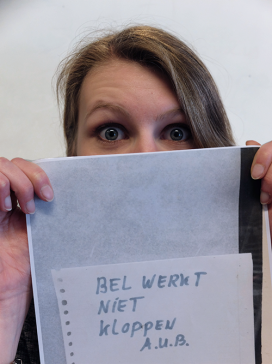 BEL WERKT
NIET
KLOPPEN
A.U.B.